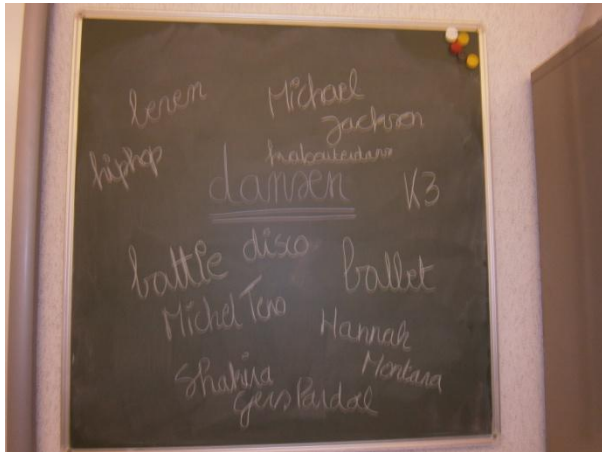 leren
Michael
Jackson
hiphop
kabouterdans
dansen
K3
battle
disco
ballet
Michel Telo
Hannah
Montana
Shakira
Gers Pardoel